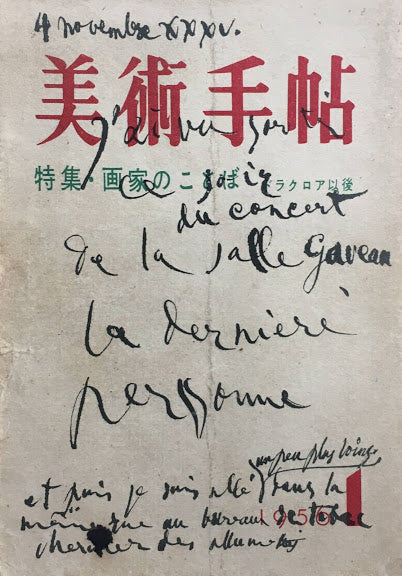 4 novembre XXXV.
美術手帖
j'ai vu sortir
特集・画家のことば ドラクロア以後
ce soir
du concert
de la salle Gaveau
la dernière
personne
un peu plus loin
et puis je suis allé dans la
même rue au bureau de tabac
chercher des allumettes
1956 1